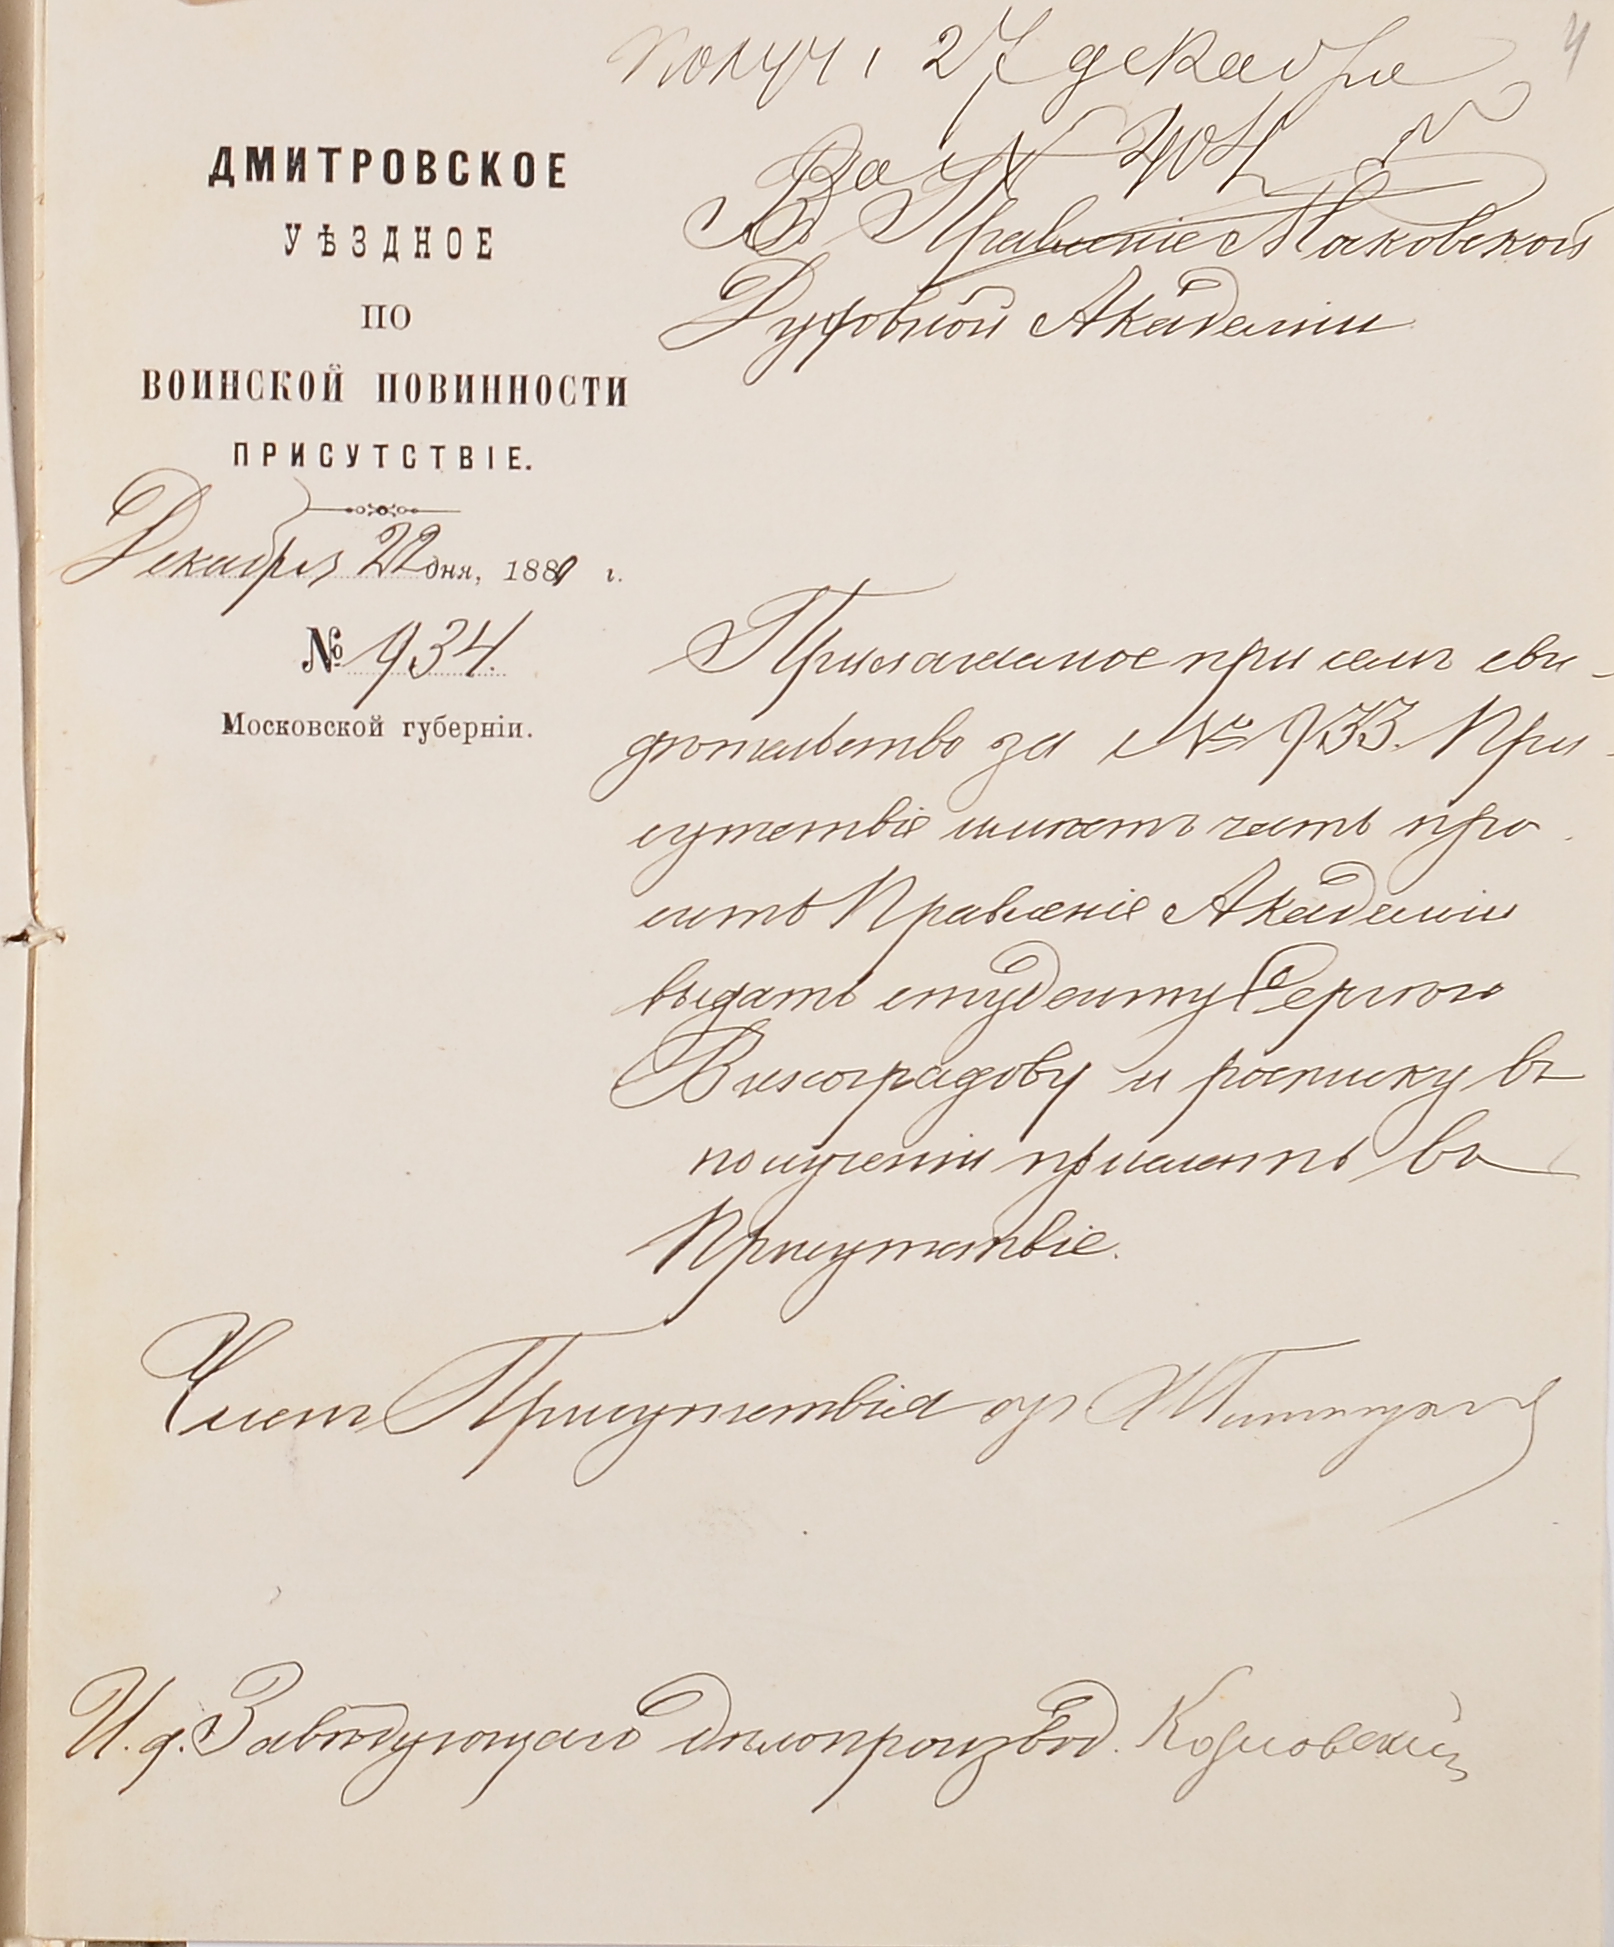 получ. 27 декабря
4
За № 404
ДМИТРОВСКОЕ
УѢЗДНОЕ
ПО
ВОИНСКОЙ ПОВИННОСТИ
ПРИСУТСТВІЕ.
Декабря 22 дня, 1881 г.
№ 934.
Московской губерніи.
Въ Правленіе Московской
Духовной Академіи
Прилагаемое при семъ сви-
дѣтельство за № 933. При-
сутствіе имѣетъ честь про-
сить Правленіе Академіи
выдать студенту Сергѣю
Виноградову и росписку въ
полученіи прислать въ
Присутствіе.
Членъ Присутствія
И. д. Завѣдующаго дѣлопроизвод.